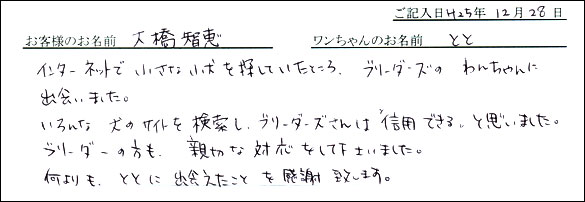 ご記入日 H25年 12月 28日
お客様のお名前 大橋智恵 ワンちゃんのお名前 とと
インターネットで 小さな小犬を探していたところ、ブリーダーズの わんちゃんに
出会いました。
いろんな 犬のサイトを検索し、ブリーダーズさんは「信用できる」と思いました。
ブリーダーの方も、親切な対応をして下さいました。
何よりも、ととに出会えたことを感謝致します。